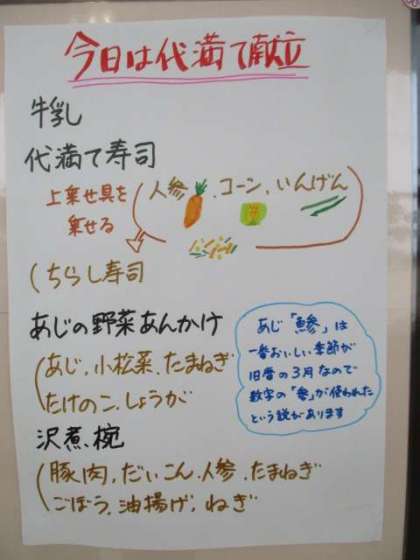 今日は代満て献立
牛乳
代満て寿司
上乗せ具を
乗せる
人参、コーン、いんげん
ちらし寿司
あじの野菜あんかけ
あじ、小松菜、たまねぎ
たけのこ、しょうが
あじ「鰺」は
一番おいしい季節が
旧暦の3月なので
数字の「参」が使われた
という説があります
沢煮椀
豚肉、だいこん、人参、たまねぎ
ごぼう、油揚げ、ねぎ